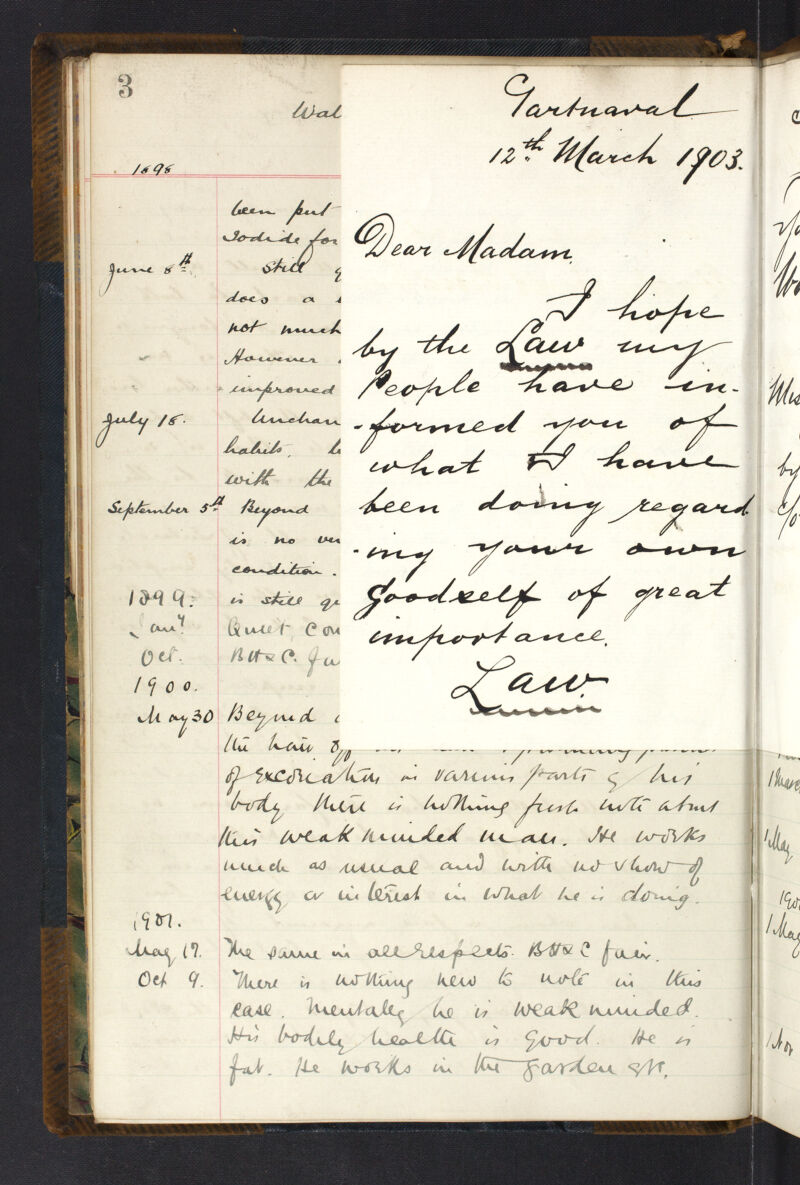 3
Wal
1898
been put
Iodide for
June 8th. Still g
does a
not much
However
improved
July 18. Unchan
habits. 
with the
September 5th Beyond
is no
condition.
1899. is still
Jany. Quiet, Con
Oct. BH&C. fa
1900.
May 30 Beyond
the hair
of excoriation in various parts of his
body there is nothing fresh note about
this weak minded man. He works
much as usual and with no show of
energy or interest in what he is doing.
1901.
May 17. The same in all respects. BH&C fair.
Oct 9. There is nothing new to note in this
case. Mentally he is weak minded.
His bodily health is good. He is
fat. He works in the garden etc.
Gartnaval
12th March 1903.
Dear Madam,
I hope
by the Law my
People have in-
-formed you of
what I have
been doing regard
-ing your own
Goodself of great
importance.
Law.